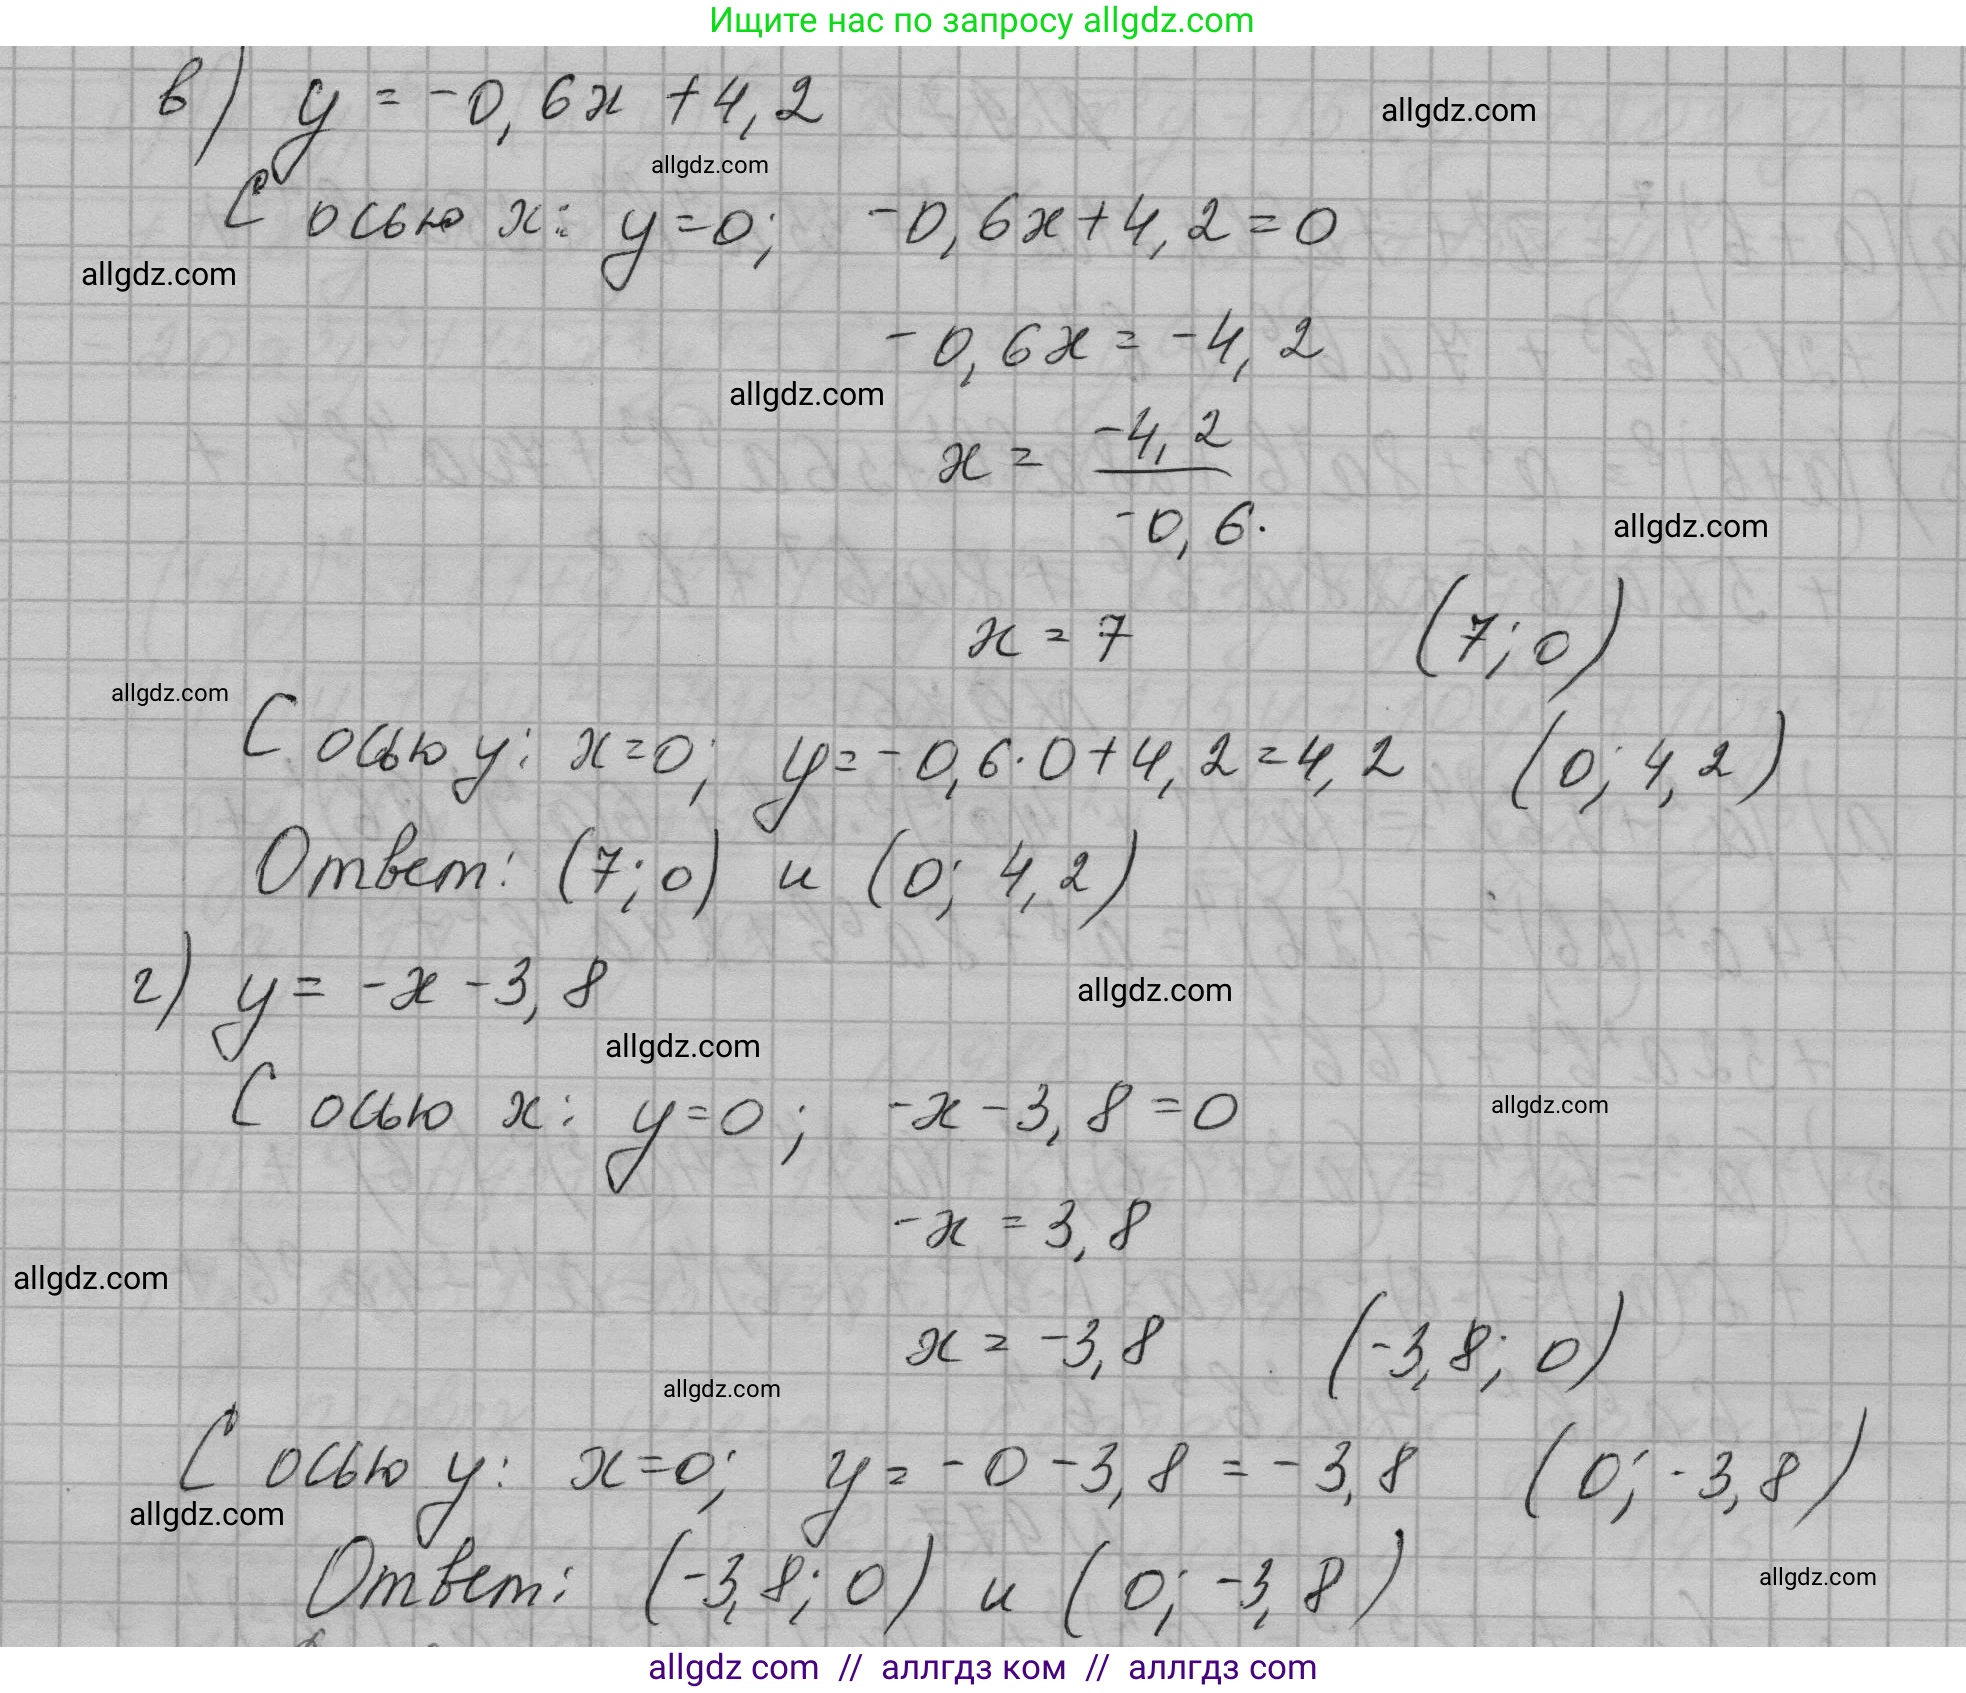 Ищите нас по запросу allgdz.com
в) y = -0,6x + 4,2
allgdz.com
allgdz.com
С осью x: y=0; -0,6x+4,2=0
allgdz.com
-0,6x = -4,2
allgdz.com
x = -4,2
-0,6.
allgdz.com
x = 7 (7; 0)
allgdz.com
С осью y: x=0; y=-0,6·0+4,2=4,2 (0; 4,2)
Ответ: (7; 0) и (0; 4,2)
г) y = -x - 3,8
allgdz.com
allgdz.com
С осью x: y=0; -x-3,8=0
allgdz.com
-x = 3,8
allgdz.com
x = -3,8 (-3,8; 0)
allgdz.com
С осью y: x=0; y=-0-3,8=-3,8 (0; -3,8)
allgdz.com
Ответ: (-3,8; 0) и (0; -3,8)
allgdz.com
allgdz com // аллгдз ком // аллгдз com